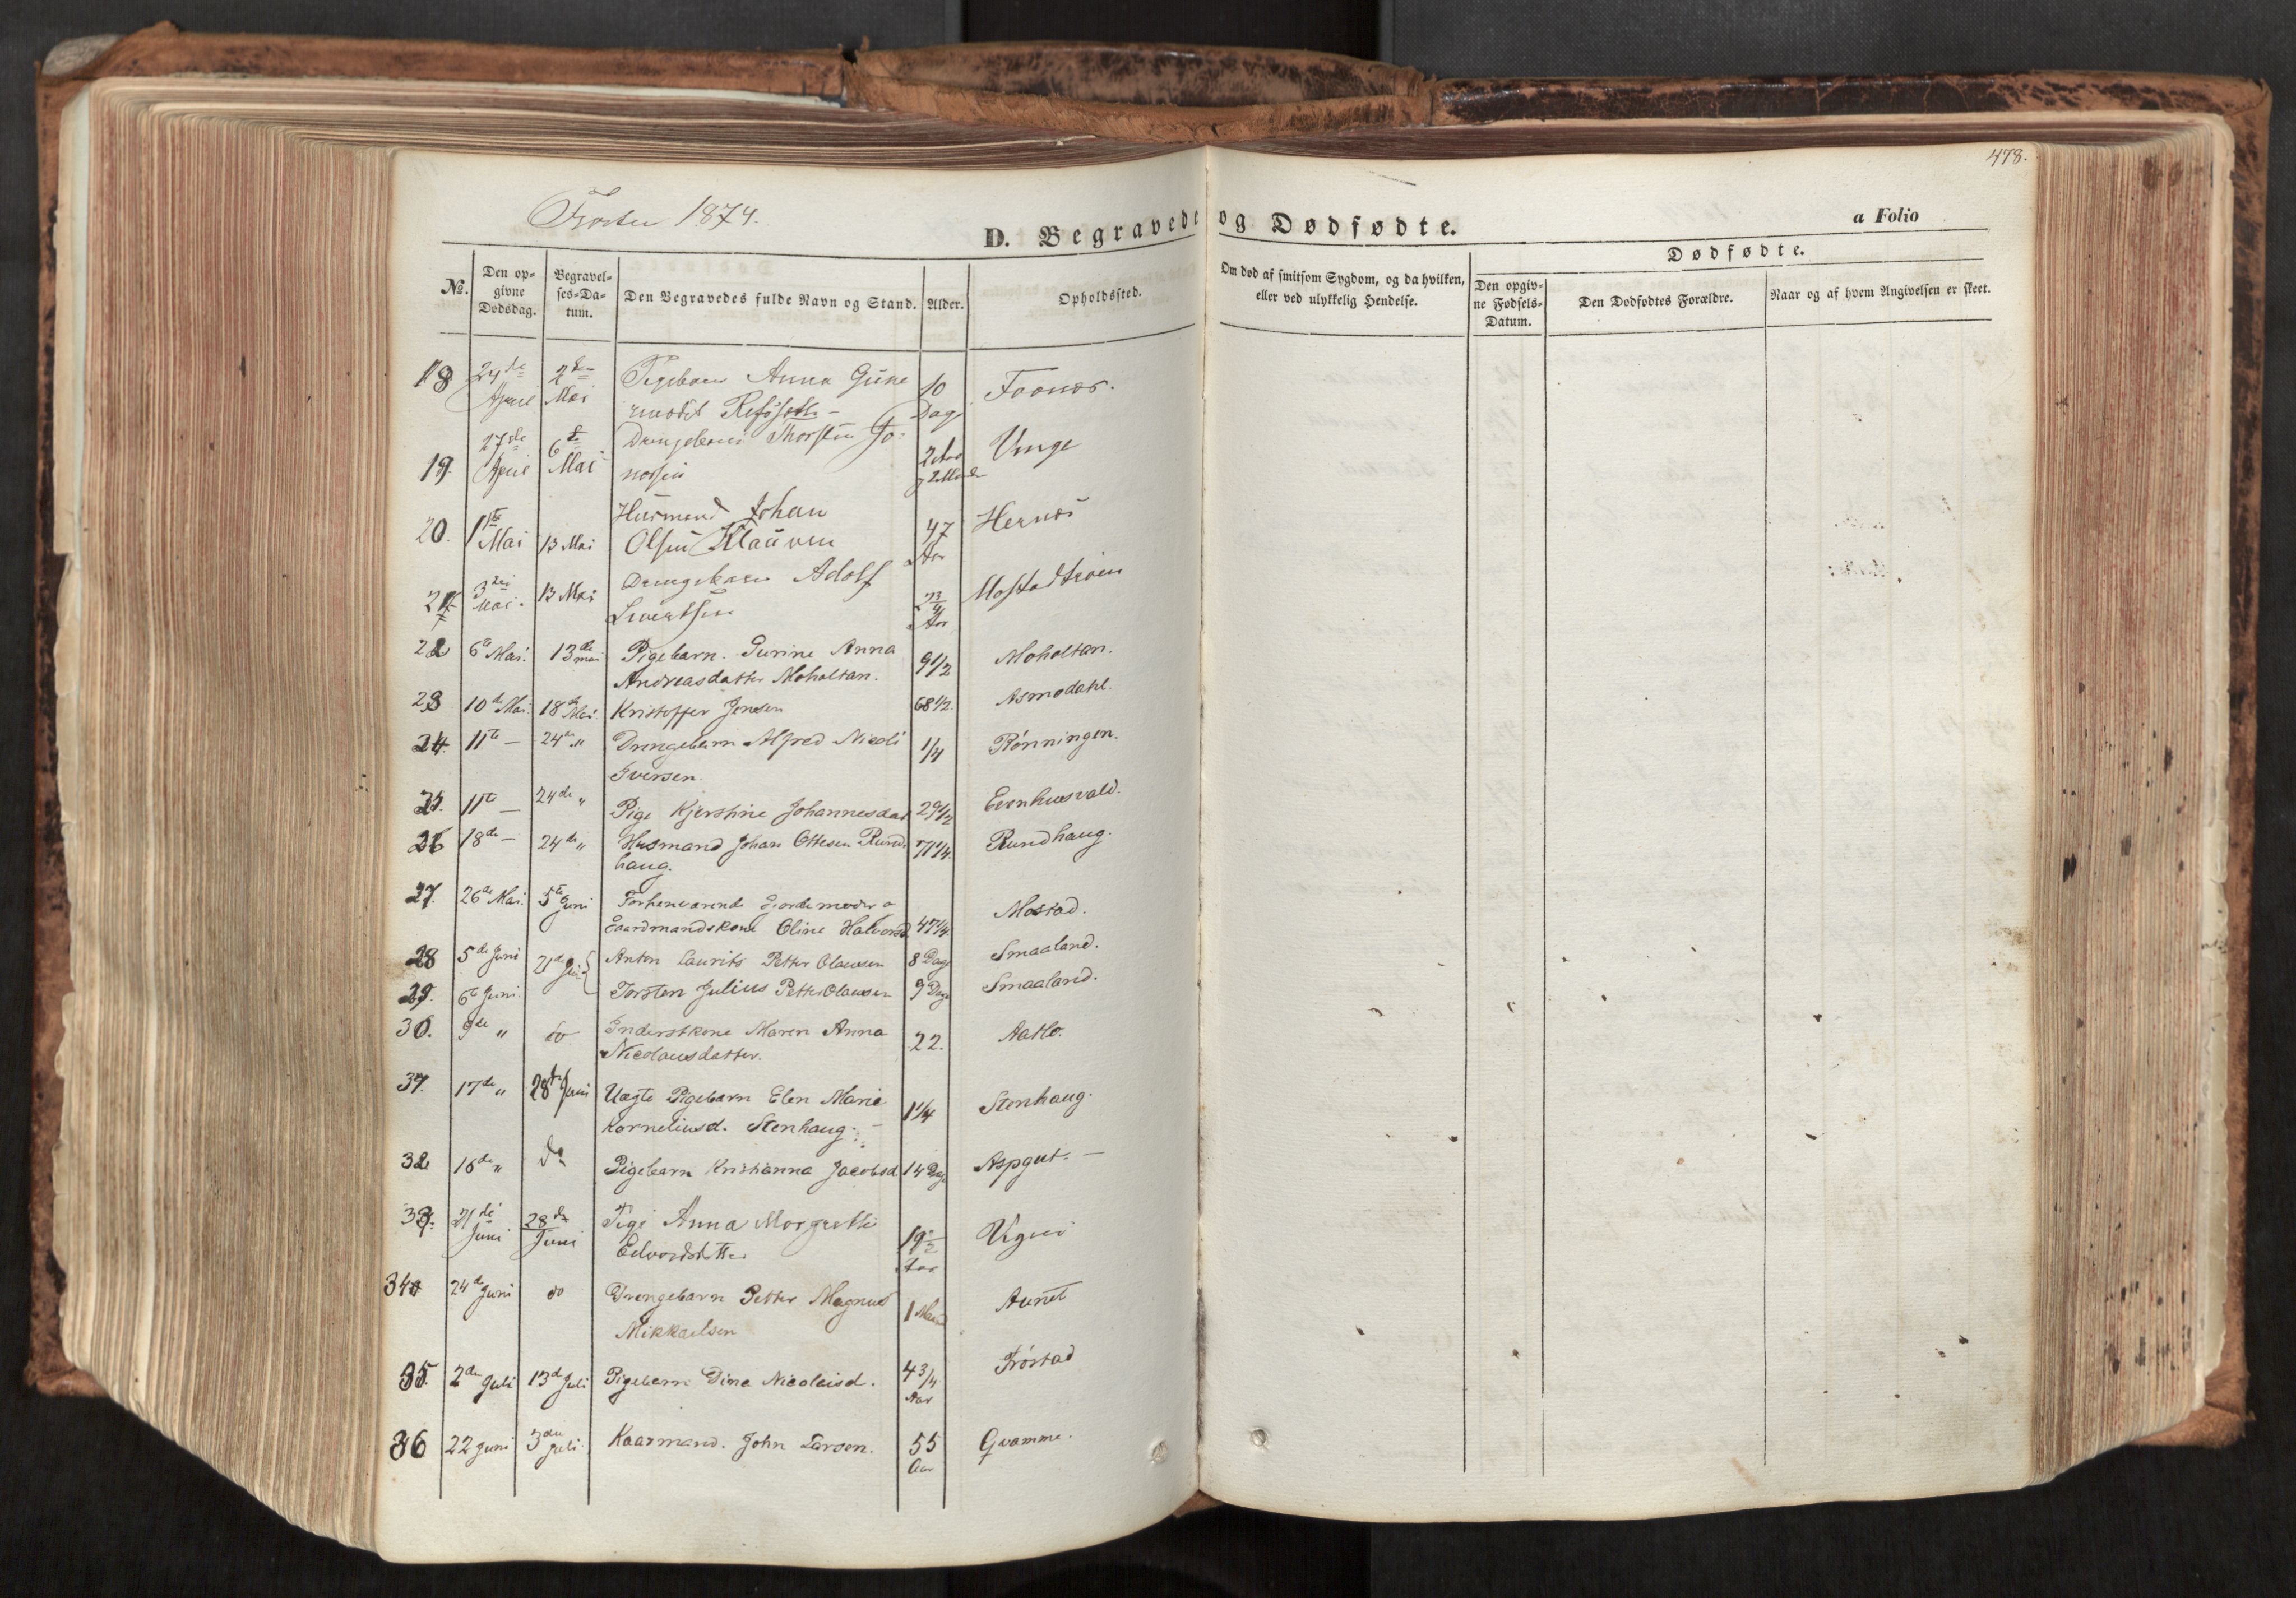 478.
Frosten 1874.
D. Begravede og Dødfødte.
a Folio
No.
Den opgivne Dødsdag.
Begravelses-Datum.
Den Begravedes fulde Navn og Stand.
Alder.
Opholdssted.
Om død af smitsom Sygdom, og da hvilken, eller ved ulykkelig Hendelse.
Dødfødte.
Den opgivne Fødsels-Datum.
Den Dødfødtes Forældre.
Naar og af hvem Angivelsen er skeet.
18 24de April 2den Mai Pigebarn Anna 10 Dage
19. 27de April 6te Mai Drengebarn Thorsten Jo- 2 Aar Vinge
20. 1ste Mai 13 Mai Husmand Johan
Olsen 47 Aar Hernes
21 3die Mai. 13 Mai Drengebarn Adolf
Sivertsen 2 3/4 Aar Mostadtrøen
22 6te Mai. 13de mai Pigebarn. Gurine Anna
Andreasdatter Moholtan. 9 1/2 Moholtan.
23 10de Mai. 18de Mai. Kristoffer Jensen 68 1/2. Asmodahl.
24. 11te — 24de " Drengebarn Alfred Nicoli
Iversen. 1/4 Rønningen.
25. 11te — 24de " Pige Kjerstine Johannesdat 29 1/2
26 18de — 24de " Husmand Johan Ottesen Rund-
haug. 71 1/4. Rundhaug.
27. 26de Mai. 5te Juni Forhenværende Gjordemoder o
Gaardmandskone Oline Halvorsd. 47 1/4. Mostad.
28 5te Juni 21de Juni Anton Laurits Petter Olaussen 8 Dage Smaaland.
29. 6te Juni. Torsten Julius Petter Olaussen 9 Dage Smaaland.
30. 9de " do Inderstkone Maren Anna
Nicolausdatter. 22. Aatlo.
31. 17de " 28de Juni Uægte Pigebarn Elen Marie
Korneliusd. Stenhaug. — 1 1/4 Stenhaug.
32 16de " do Pigebarn Kristianna Jacobsd. 14 Dage —
33. 21de Juni 28de Juni Pige Anna Margrethe
Edvardsdatter 19 1/2 Aar Vigen
34 24de Juni do Drengebarn Petter Magnus
Mikkaelsen 1 Maaned Aunet
35. 2den Juli 13de Juli Pigebarn Dina Nicolaisd. 4 3/4 Aar Frøstad
36 22 Juni 3die Juli. Kaarmand. John Larsen. 55 Aar Qvamme.